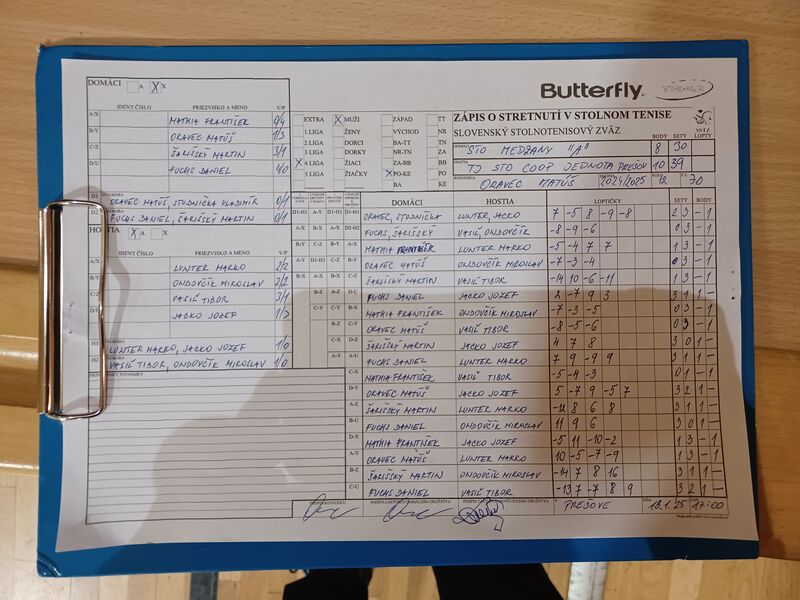 DOMÁCI A X
Butterfly
IDENT ČÍSLO PRIEZVISKO A MENO V/P
A/X MATHIA FRANTIŠEK 0/4
B/Y ORAVEC MATÚŠ 1/3
C/Z ŠARIŠSKÝ MARTIN 3/1
D/U FUCHS DANIEL 4/0
D1 ORAVEC MATÚŠ, STUDNIČKA VLADIMÍR 0/1
D2 FUCHS DANIEL, ŠARIŠSKÝ MARTIN 0/1
HOSTIA X A X
IDENT ČÍSLO PRIEZVISKO A MENO V/P
A/X LUNTER MARKO 2/2
B/Y ONDOVČÍK MIROSLAV 2/2
C/Z VASIĽ TIBOR 3/1
D/U JACKO JOZEF
H1 LUNTER MARKO, JACKO JOZEF 1/0
H2 VASIĽ TIBOR, ONDOVČÍK MIROSLAV 1/0
EXTRA X MUŽI ZÁPAD TT
1 LIGA ŽENY VÝCHOD NR
2 LIGA DORCI BA-TT TN
3 LIGA DORKY NR-TN ZA
X 4 LIGA ŽIACI ZA-BB BB
5 LIGA ŽIAČKY X PO-KE PO
BA KE
ZÁPIS O STRETNUTÍ V STOLNOM TENISE
SLOVENSKÝ STOLNOTENISOVÝ ZVÄZ BODY SETY
STO MEDZANY "A" 8 30
TJ STO COOP JEDNOTA PREŠOV 10 39
ORAVEC MATÚŠ 2024/2025 12 70
DOMÁCI HOSTIA LOPTIČKY SETY BODY
D1-H1 ORAVEC, STUDNIČKA LUNTER, JACKO 7 -5 8 -9 -8 2 3 - 1
D2-H2 FUCHS, ŠARIŠSKÝ VASIĽ, ONDOVČÍK -8 -9 -6 0 3 - 1
MATHIA FRANTIŠEK LUNTER MARKO -5 -4 7 -7 1 3 - 1
ORAVEC MATÚŠ ONDOVČÍK MIROSLAV -7 -3 -4 0 3 - 1
ŠARIŠSKÝ MARTIN VASIĽ TIBOR -14 10 -6 -11 1 3 - 1
FUCHS DANIEL JACKO JOZEF 2 -7 9 3 3 1 1 -
MATHIA FRANTIŠEK ONDOVČÍK MIROSLAV -7 -3 -5 0 3 - 1
ORAVEC MATÚŠ VASIĽ TIBOR -8 -5 -6 0 3 - 1
ŠARIŠSKÝ MARTIN JACKO JOZEF 4 7 8 3 0 1 -
FUCHS DANIEL LUNTER MARKO 7 9 -9 9 3 1 1 -
C-X MATHIA FRANTIŠEK VASIĽ TIBOR -5 -4 -3 0 1 -
D-Y ORAVEC MATÚŠ JACKO JOZEF 5 -7 9 -5 7 3 2 1 -
A-Z ŠARIŠSKÝ MARTIN LUNTER MARKO -12 8 6 8 3 1 1 -
B-U FUCHS DANIEL ONDOVČÍK MIROSLAV 11 9 6 3 0 1 -
D-X MATHIA FRANTIŠEK JACKO JOZEF -5 11 -10 -2 1 3 - 1
A-Y ORAVEC MATÚŠ LUNTER MARKO 10 -5 -7 -9 1 3 - 1
B-Z ŠARIŠSKÝ MARTIN ONDOVČÍK MIROSLAV -14 7 8 16 3 1 1 -
C-U FUCHS DANIEL VASIĽ TIBOR -13 7 -7 8 9 3 2 1 -
PREŠOVE 18.1.25 17:00